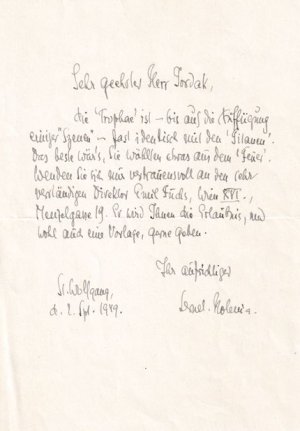 Sehr geehrter Herr Jordak,
die Trophae ist – bis auf die Einfügung
einiger "Szenen" – fast identisch mit den 'Titanen'.
Das beste wär's, Sie wählten etwas aus dem 'Feuer'.
Wenden Sie sich nur vertrauensvoll an den sehr
verständigen Direktor Emil Fuchs, Wien XVI.,
Menzelgasse 19. Er wird Ihnen die Erlaubnis, und
wohl auch eine Vorlage, gerne geben.
Ihr aufrichtiger
St. Wolfgang,
d. 2. Spt. 1949.